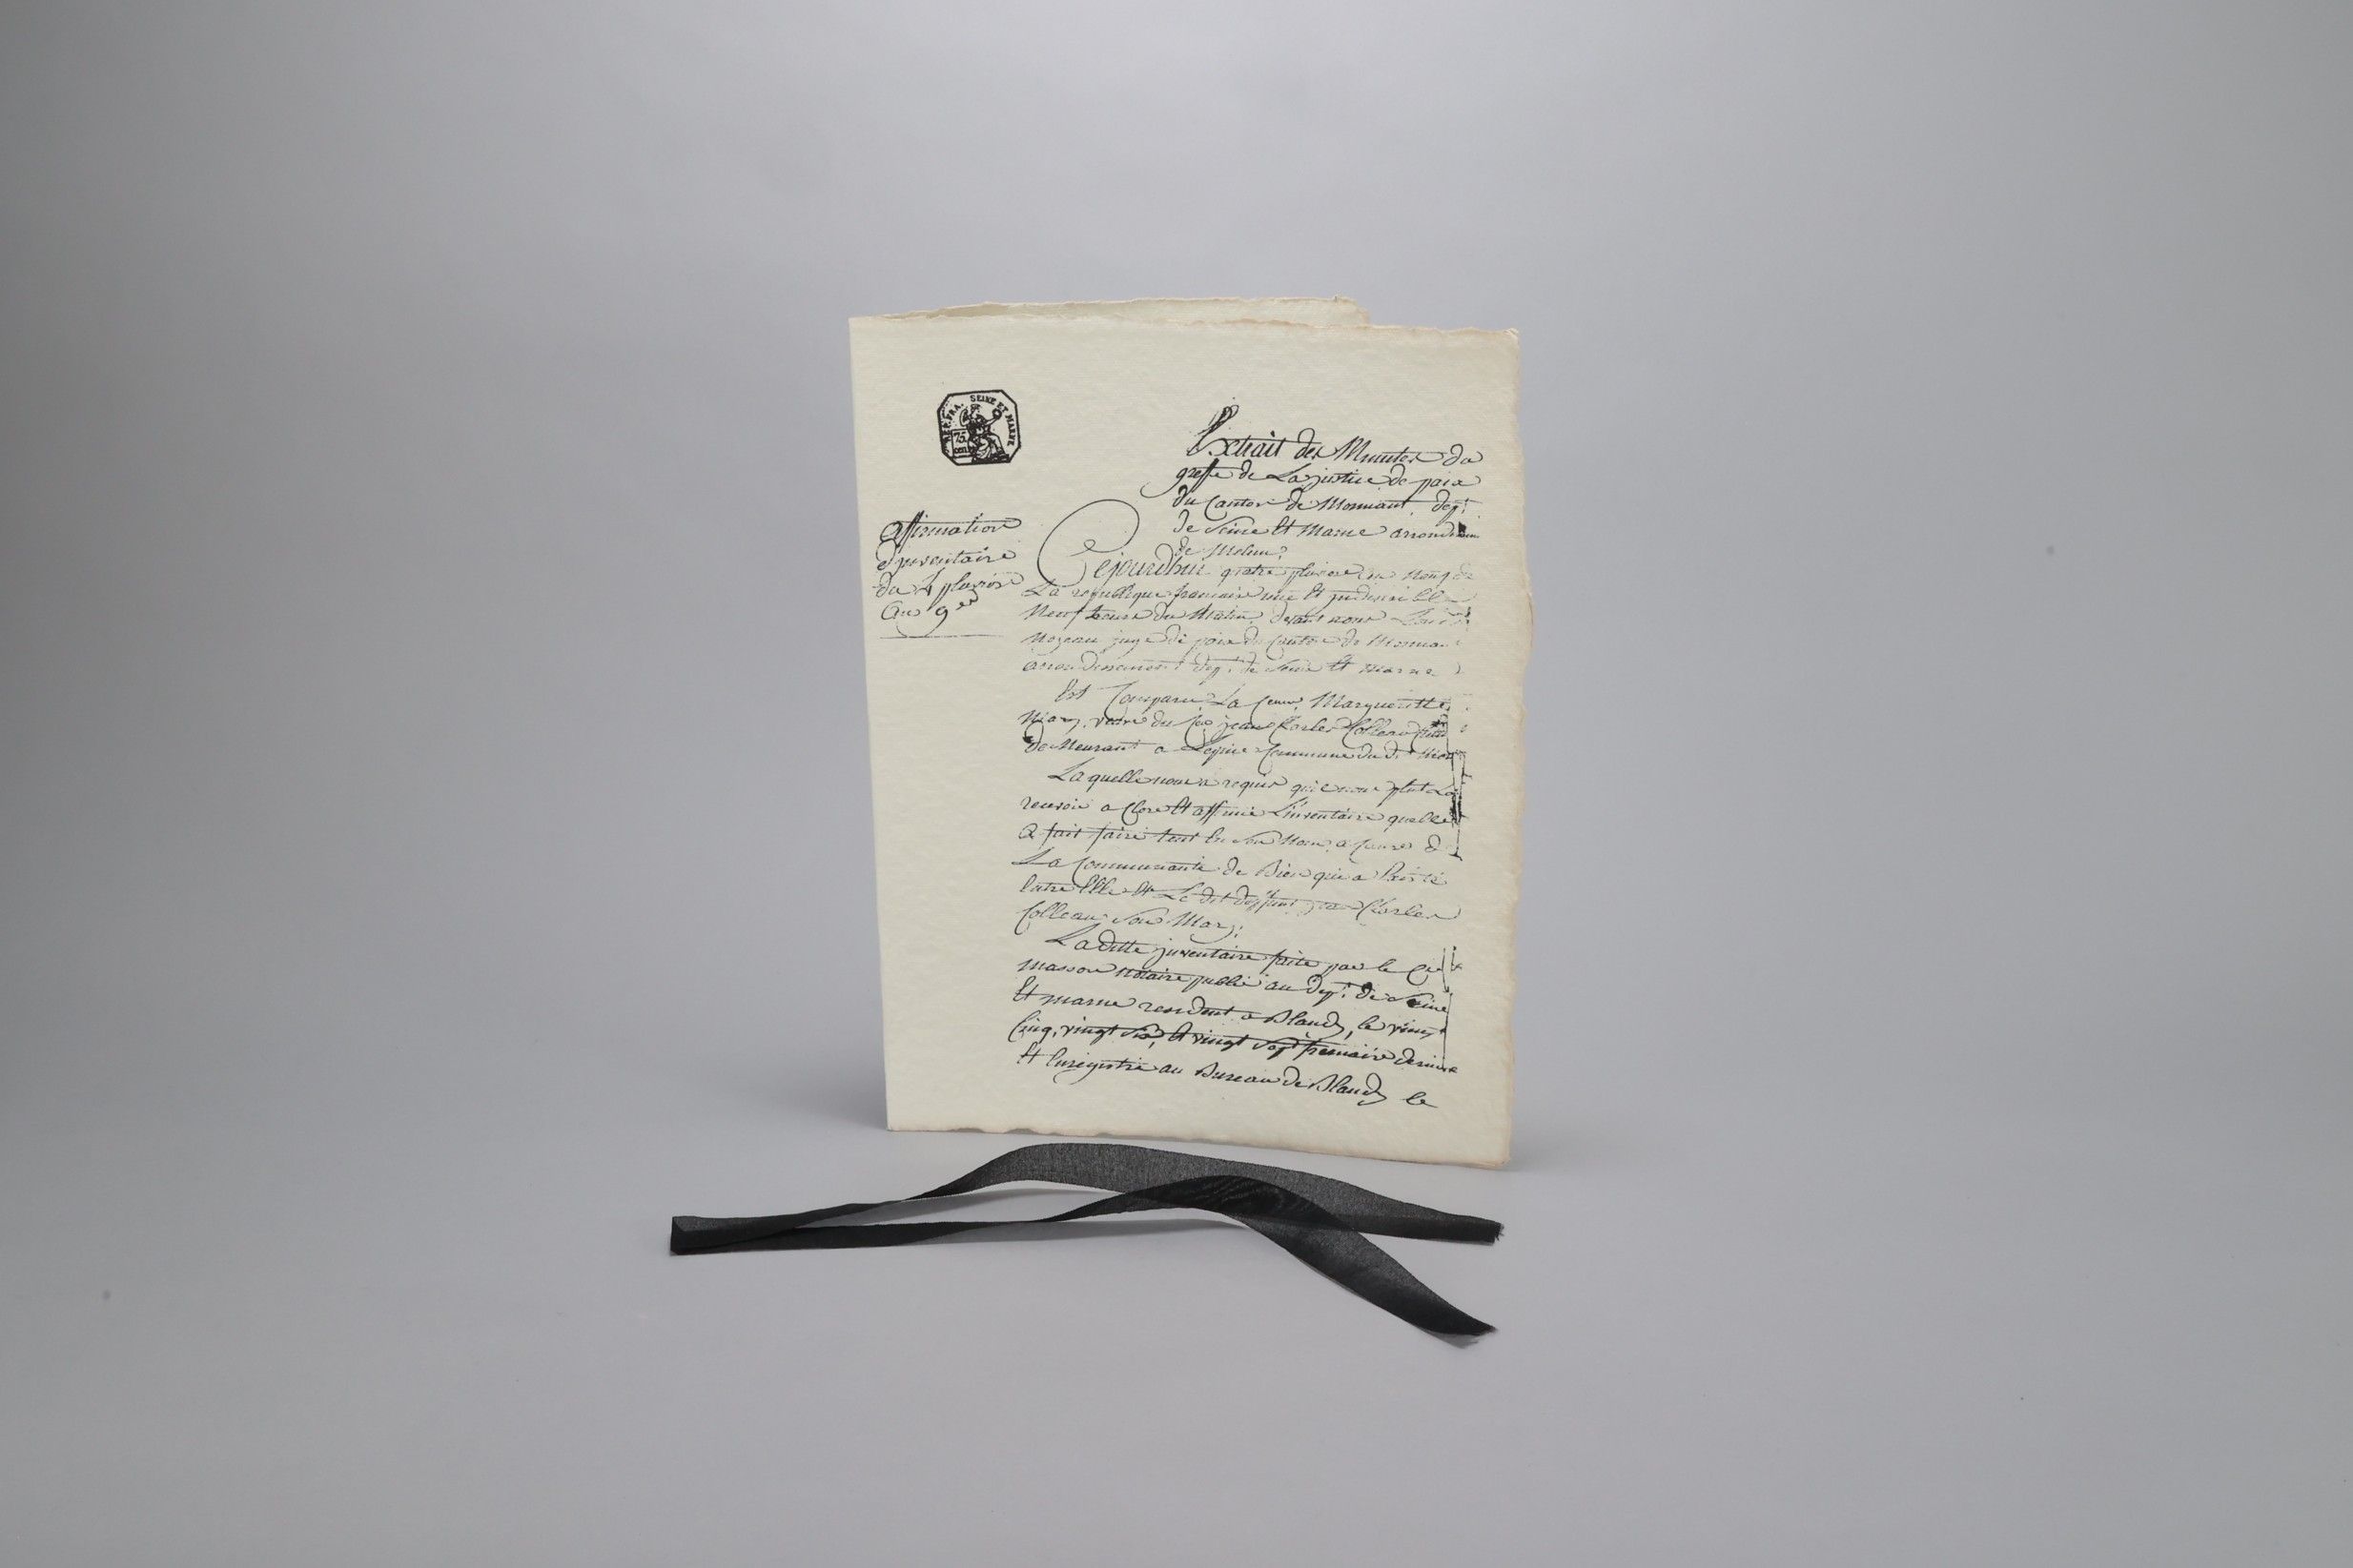 REP. FRA. SEINE ET MARNE
75 cen
Extrait des Minutes du
greffe de La justice de paix
du Canton de Mormant, dept.
de Seine Et Marne arrondissem
de Melun.
affirmation
d'jnventaire
du 4 pluviose
an 9
Cejourdhui quatre pluviose an neuf de
La republique francaise une Et jndivisible
Neuf heure du Matin, devant nous Louis
juge de paix du Canton de Morman
arrondissement dept. de Seine Et Marne
Est Comparu La Margueritte
veuve du jean Charles Colleau
demeurant a Lepine Commune du dt. Mor
Laquelle nous a requis que nous plut La
recevoir a Clore Et affirmé L'inventaire quelle
a fait faire tant En Son Nom a Cause de
La Communauté de Bien qui a Existé
Entre Elle Et Le dit deffunt jean Charles
Colleau Son Mary;
Laditte jnventaire faite par le Cit
masson notaire public au dept. de Seine
Et marne resident a Blandy, le vingt
Cinq, vingt Six, Et vingt Sept frimaire dernier
Et Enregistré au Bureau de Blandy le